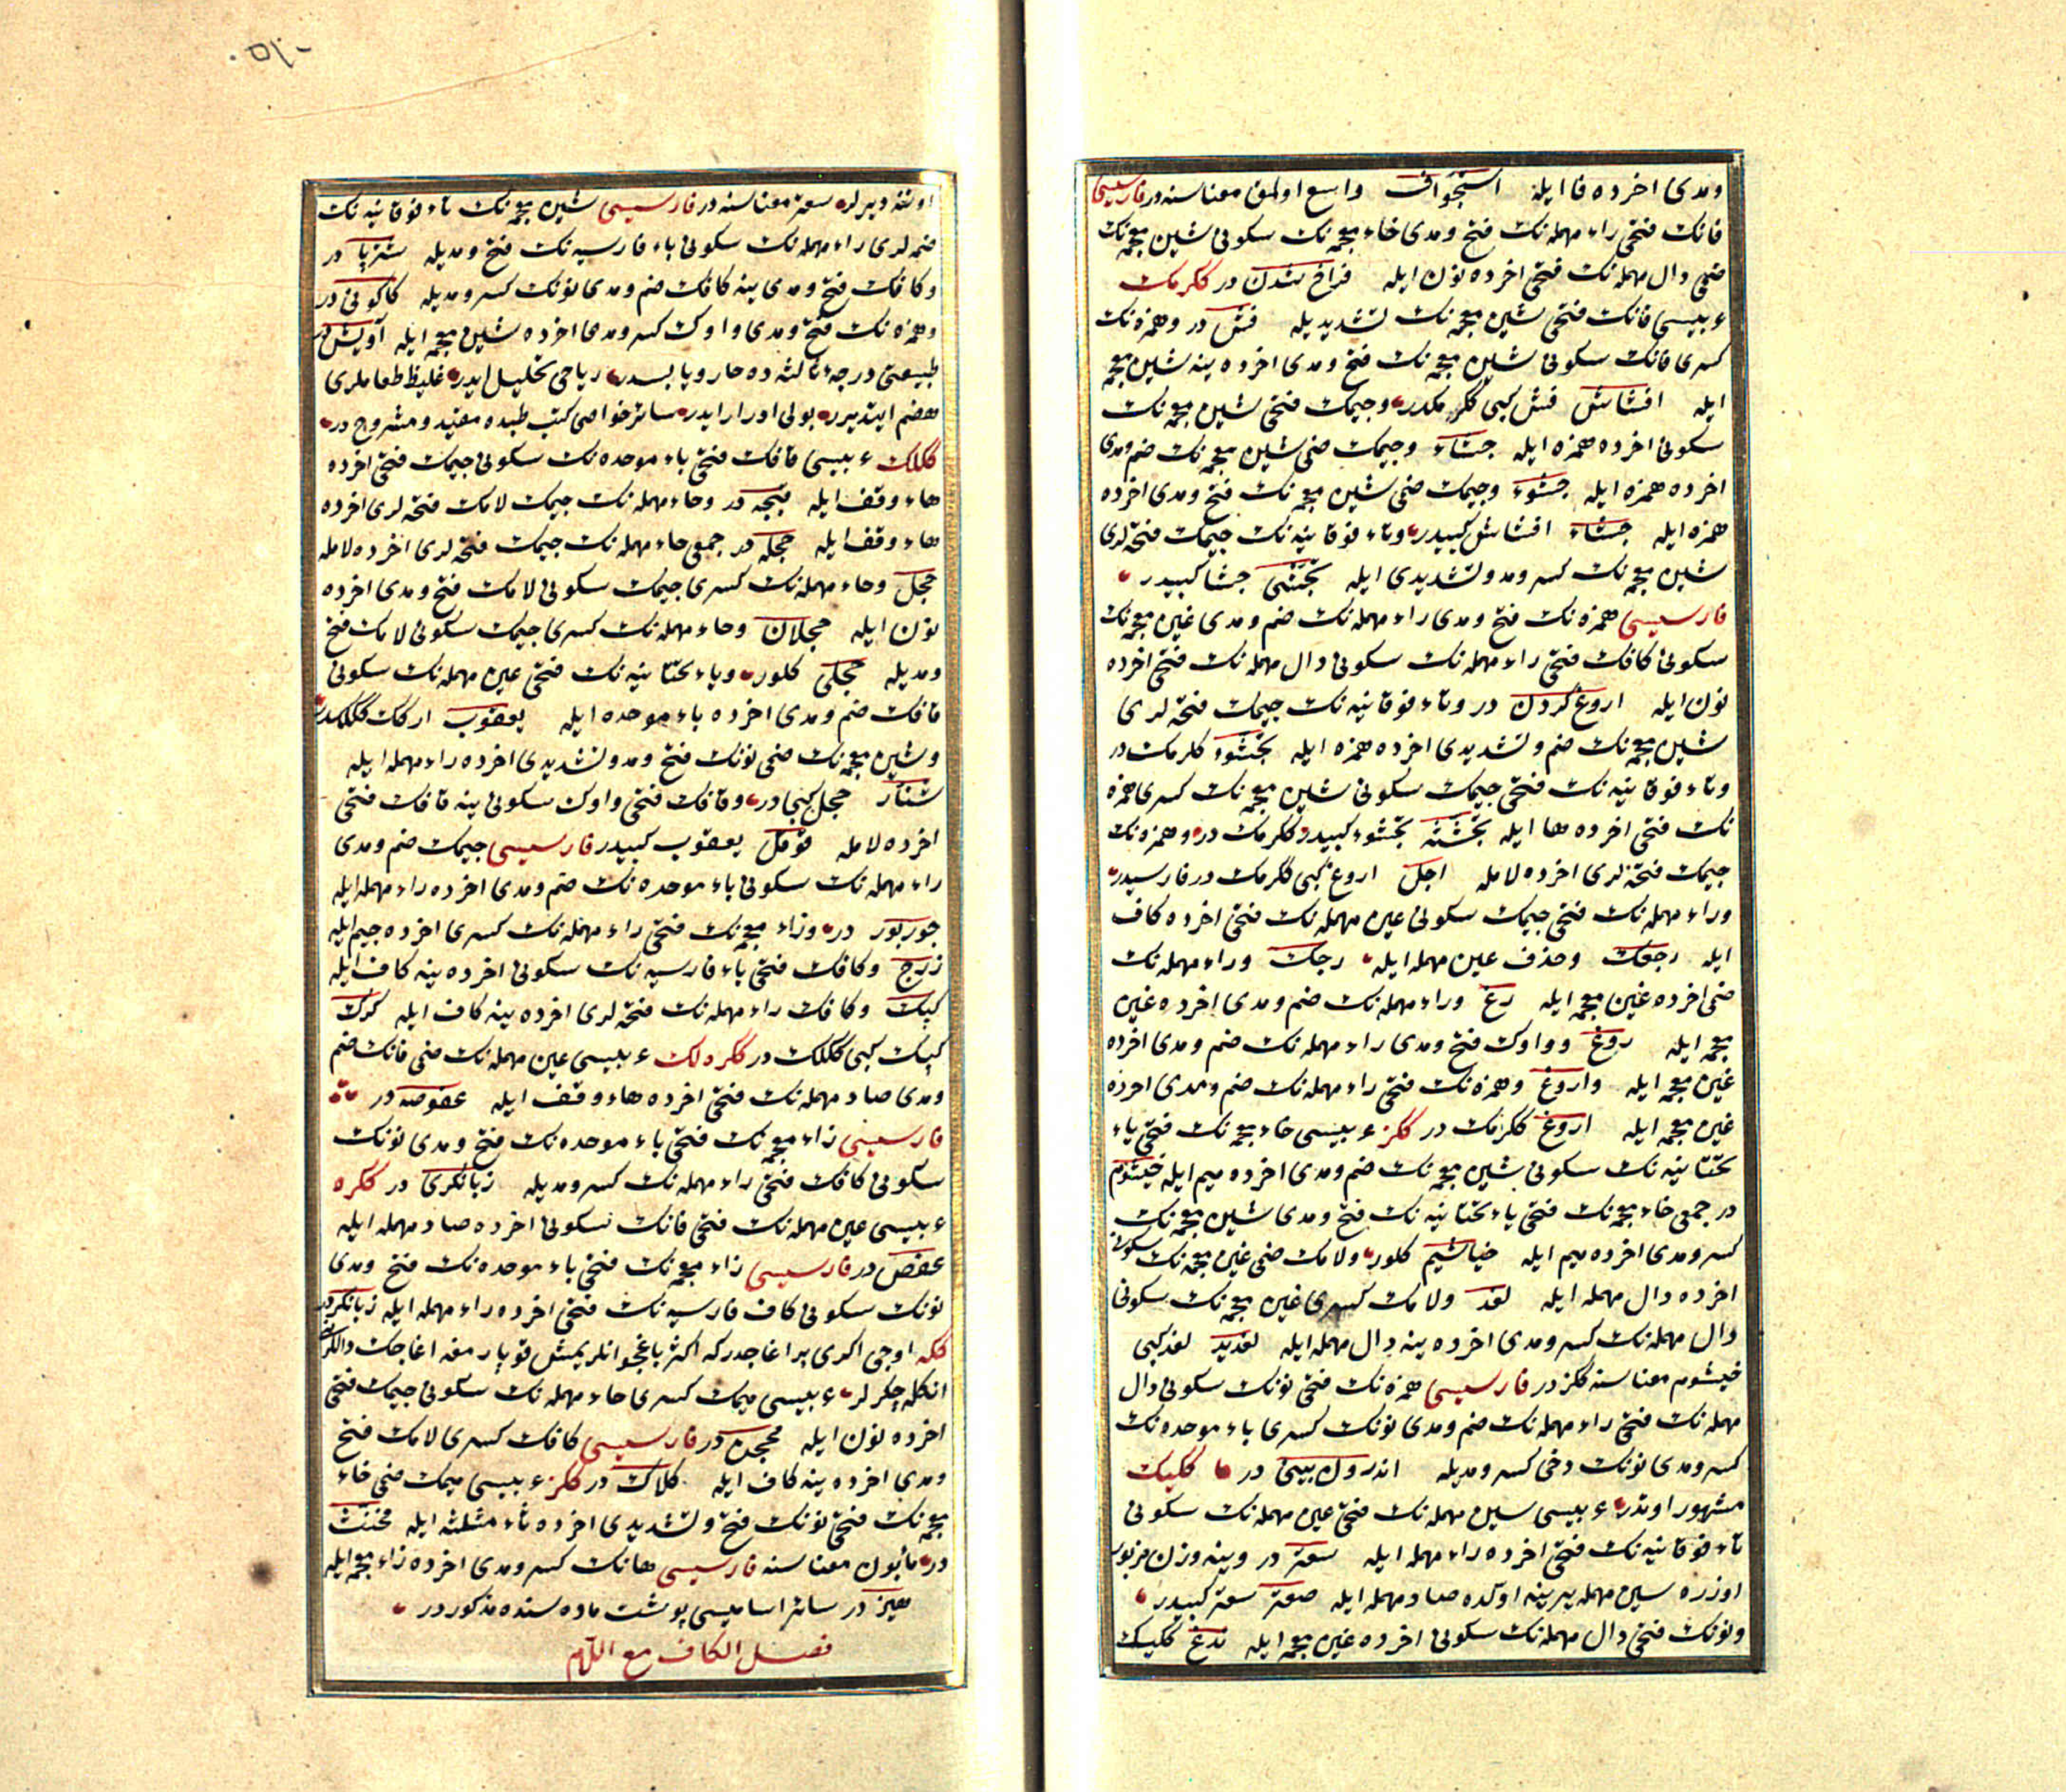 ومدی اخرده فا ایله استجواف واسع اولمق معناسنه در فارسیسی
فانك فتحی راء مهمله نك فتح ومدی خاء معجمه نك سکونی شین معجمه نك
ضمی دال مهمله نك فتحی اخرده نون ایله فراخ شدن در ککرمك
عربیسی فانك فتحی شین معجمه نك تشدیدیله فش در وهمزه نك
کسری فانك سکونی شین معجمه نك فتح ومدی اخرده ینه شین معجمه
ایله افشاش فش کبی ککرمکدر وجیمك فتحی شین معجمه نك
سکونی اخرده همزه ایله جشاء وجیمك ضمی شین معجمه نك ضم ومدی
اخرده همزه ایله جشوء وجیمك ضمی شین معجمه نك فتح ومدی اخرده
همزه ایله جشاء افشاش کبیدر وتاء فوقانیه نك جیمك فتحه لری
شین معجمه نك کسر ومد وتشدیدی ایله تجشی جشا کبیدر
فارسیسی همزه نك فتح ومدی راء مهمله نك ضم ومدی غین معجمه نك
سکونی کافك فتحی راء مهمله نك سکونی دال مهمله نك فتحی اخرده
نون ایله اروغ کردن در وتاء فوقانیه نك جیمك فتحه لری
شین معجمه نك ضم وتشدیدی اخرده همزه ایله تجشوء ککرمك در
وتاء فوقانیه نك فتحی جیمك سکونی شین معجمه نك کسری همزه
نك فتحی اخرده ها ایله تجشئه تجشوء کبیدر ککرمك در وهمزه نك
جیمك فتحه لری اخرده لامله اجل اروغ کبی ککرمك در فارسیدر
وراء مهمله نك فتحی جیمك سکونی عین مهمله نك فتحی اخرده کاف
ایله رجعك وحذف عین مهمله ایله رجك وراء مهمله نك
ضمی اخرده غین معجمه ایله رغ وراء مهمله نك ضم ومدی اخرده غین
معجمه ایله روغ وواوك فتح ومدی راء مهمله نك ضم ومدی اخرده
غین معجمه ایله واروغ وهمزه نك فتحی راء مهمله نك ضم ومدی اخرده
غین معجمه ایله اروغ ککرمك در ککز عربیسی خاء معجمه نك فتحی یاء
تحتانیه نك سکونی شین معجمه نك ضم ومدی اخرده میم ایله خیشوم
در جمعی خاء معجمه نك فتحی یاء تحتانیه نك فتح ومدی شین معجمه نك
کسر ومدی اخرده میم ایله خیاشیم کلور ولامك ضمی غین معجمه نك سکونی
اخرده دال مهمله ایله لغد ولامك کسری غین معجمه نك سکونی
دال مهمله نك کسر ومدی اخرده ینه دال مهمله ایله لغدید لغد کبی
خیشوم معناسنه ککز در فارسیسی همزه نك فتحی نونك سکونی دال
مهمله نك فتحی راء مهمله نك ضم ومدی نونك کسری باء موحده نك
کسر ومدی نونك دخی کسر ومدیله اندرون بینی در ککیك
مشهور اوتدر عربیسی سین مهمله نك فتحی عین مهمله نك سکونی
تاء فوقانیه نك فتحی اخرده راء مهمله ایله سعتر در وینه وزن مزبور
اوزره سین مهمله یرینه اولکده صاد مهمله ایله صعتر سعتر کبیدر
ونونك فتحی دال مهمله نك سکونی اخرده غین معجمه ایله ندغ ککیك
اوتنه دیرلر سعتر معناسنه در فارسیسی شین معجمه نك تاء فوقانیه نك
ضمه لری راء مهمله نك سکونی باء فارسیه نك فتح ومدیله شترپا در
وکافك فتح ومدی ینه کافك ضم ومدی نونك کسر ومدیله کاکونی در
وهمزه نك فتح ومدی واوك کسر ومدی اخرده شین معجمه ایله آویش در
طبیعتی درجه ثالثه ده حار ویابسدر ریاحی تحلیل ایدر غلیظ طعاملری
هضم ایتدیرر بولی ادرار ایدر سائر خواصی کتب طبده مقید ومشروح در
ککلك عربیسی قافك فتحی باء موحده نك سکونی جیمك فتحی اخرده
هاء وقف ایله قبجه در وحاء مهمله نك جیمك لامك فتحه لری اخرده
هاء وقف ایله حجله در جمعی حاء مهمله نك جیمك فتحه لری اخرده لامله
حجل وحاء مهمله نك کسری جیمك سکونی لامك فتح ومدی اخرده
نون ایله حجلان وحاء مهمله نك کسری جیمك سکونی لامك فتح
ومدیله حجلی کلور ویاء تحتانیه نك فتحی عین مهمله نك سکونی
قافك ضم ومدی اخرده باء موحده ایله یعقوب ارکك ککلکدر
وشین معجمه نك ضمی نونك فتح ومد وتشدیدی اخرده راء مهمله ایله
شنار حجل کبی در وقافك فتحی واوك سکونی ینه قافك فتحی
اخرده لامله قوقل یعقوب کبیدر فارسیسی جیمك ضم ومدی
راء مهمله نك سکونی باء موحده نك ضم ومدی اخرده راء مهمله ایله
جوربور در وزاء معجمه نك فتحی راء مهمله نك کسری اخرده جیم ایله
زرج وکافك فتحی باء فارسیه نك سکونی اخرده ینه کاف ایله
کپك وکافك راء مهمله نك فتحه لری اخرده ینه کاف ایله کرك
کپك کبی ککلك در ککره لك عربیسی عین مهمله نك ضمی فانك ضم
ومدی صاد مهمله نك فتحی اخرده هاء وقف ایله عفوصه در
فارسیسی زاء معجمه نك فتحی باء موحده نك فتح ومدی نونك
سکونی کافك فتحی راء مهمله نك کسر ومدیله زبانکری در ککره
عربیسی عین مهمله نك فتحی فانك سکونی اخرده صاد مهمله ایله
عفص در فارسیسی زاء معجمه نك فتحی باء موحده نك فتح ومدی
نونك سکونی کاف فارسیه نك فتحی اخرده راء مهمله ایله زبانکر در
ککه اوجی اکری بر اغاجدر که اکثر باغجوانلر یمش قوپارمغه اغاجك داللرنی
انکله چکرلر عربیسی میمك کسری حاء مهمله نك سکونی جیمك فتحی
اخرده نون ایله محجن در فارسیسی کافك کسری لامك فتح
ومدی اخرده ینه کاف ایله کلاك در ککز عربیسی میمك ضمی خاء
معجمه نك فتحی نونك فتح وتشدیدی اخرده ثاء مثلثه ایله مخنث
در مأبون معناسنه فارسیسی هانك کسر ومدی اخرده زاء معجمه ایله
هیز در سائر اسامیسی پوشت ماده سنده مذکور در
فصل الکاف مع اللام